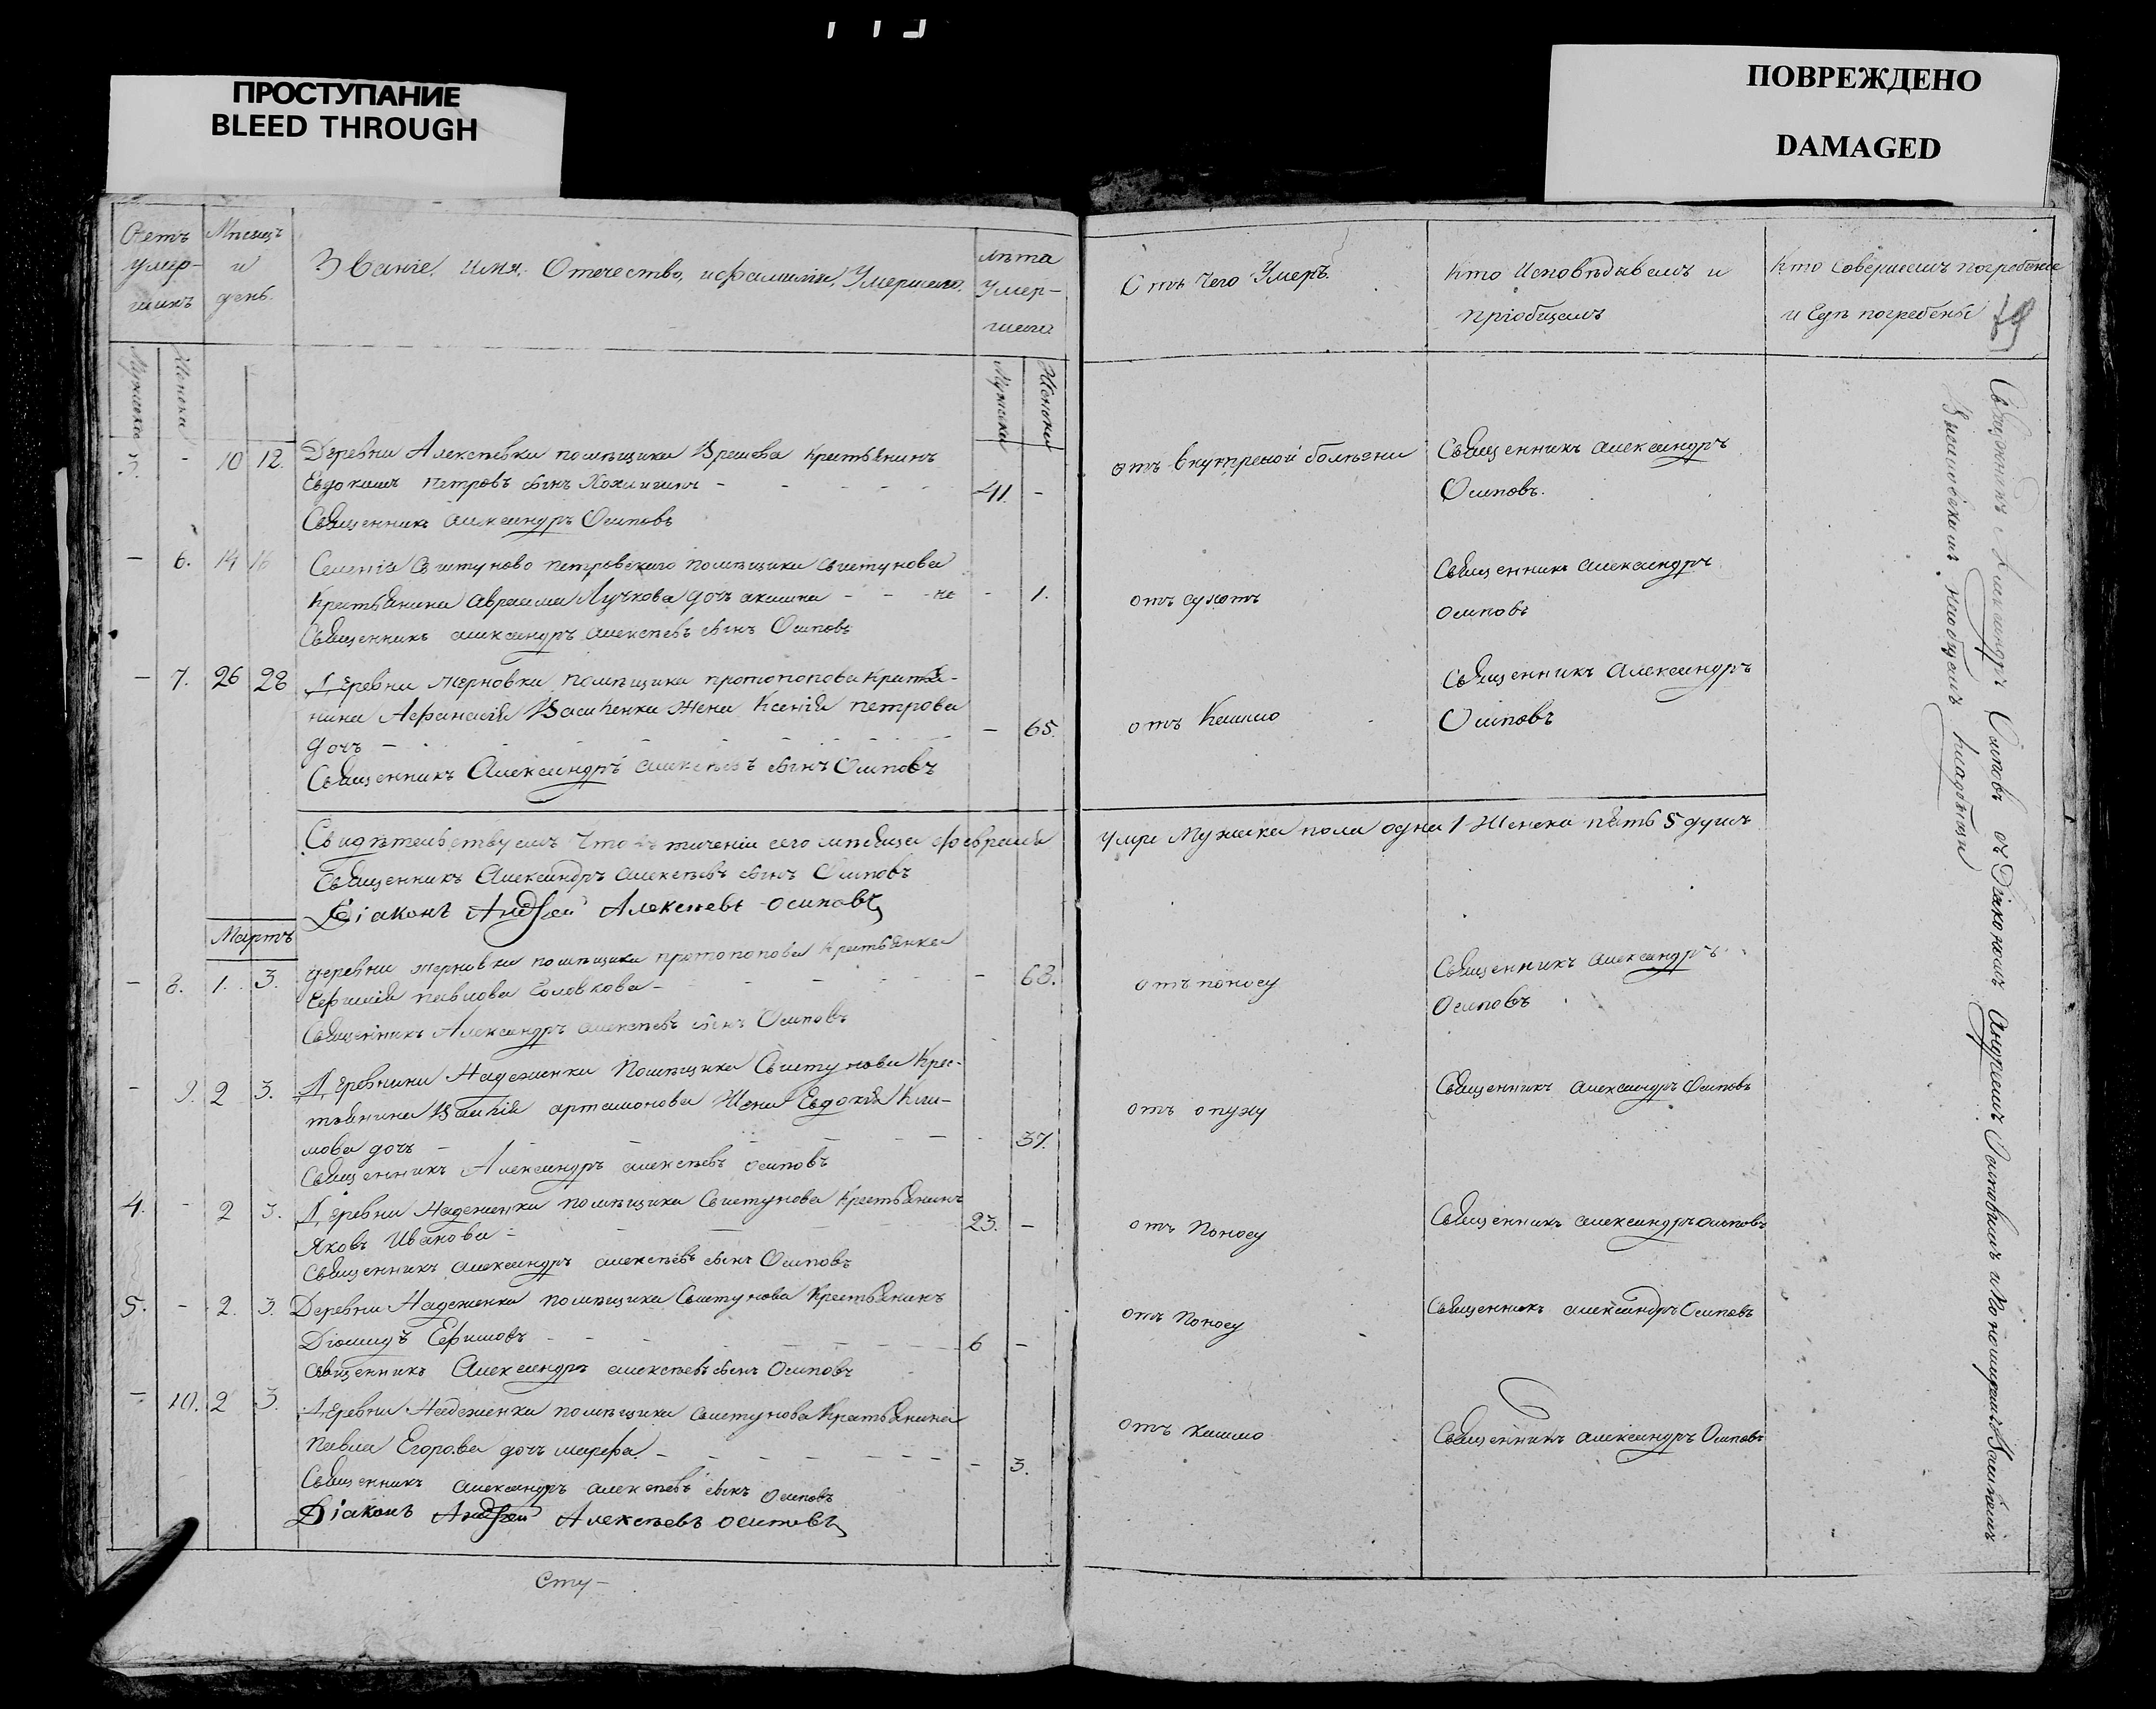 ПРОСТУПАНИЕ
BLEED THROUGH
ПОВРЕЖДЕНО
DAMAGED
Счетъ умер-шихъ
Мѣсяцъ и день.
Званіе, имя, Отечество, и фамилія, Умершаго.
лѣта Умер-шаго.
Отъ Чего Умеръ.
Кто Исповѣдавалъ и пріобщалъ
Кто Совершалъ погребеніе и Гдѣ погребены
Мужеска
Женска
Мужеска
Женска
3. - 10 12. Деревни Алексѣевки помѣщика крестьянинъ
Евдокимъ Петровъ сынъ - 41. -
Священникъ Александръ Осиповъ
отъ внутреной болѣзни
Священникъ Александръ
Осиповъ.
- 6. 14 16 Селенія Свистуново Петровскаго помѣщика Свистунова
Крестьянина Авраама Лучкова дочь - 1.
Священникъ Александръ Алексѣевъ сынъ Осиповъ
отъ сухотъ
Священникъ Александръ
Осиповъ
- 7. 26 28 Деревни Жерновки помѣщика Протопопова Крестья-
нина Афанасія Василенка Жена Ксенія Петрова
дочь - 65.
Священникъ Александръ Алексѣевъ сынъ Осиповъ
отъ Кашлю
Священникъ Александръ
Осиповъ
Свидѣтельствуемъ Что въ теченіи сего мѣсяца февраля
умре Мужеска пола одна 1 Женска пять 5 душъ
Священникъ Александръ Алексѣевъ сынъ Осиповъ
Діаконъ Андрей Алексѣевъ Осиповъ
Мартъ
- 8. 1. 3. деревни Жерновки помѣщика Протопопова Крестьянка
Ефимія Павлова Головкова - 63.
Священникъ Александръ Алексѣевъ сынъ Осиповъ
отъ поносу
Священникъ Александръ
Осиповъ
- 9. 2 3. Деревнини Надеженки Помѣщика Свистунова Крес-
тьянина Василія Артамонова Жена Евдокія Кли-
мова дочь - 37.
Священникъ Александръ Алексѣевъ Осиповъ
отъ опуху
Священникъ Александръ Осиповъ
4. - 2 3. Деревни Надеженки помѣщика Свистунова Крестьянинъ
Яковъ Иванова - 23. -
Священникъ Александръ Алексѣевъ сынъ Осиповъ
отъ Поносу
Священникъ Александръ Осиповъ
5. - 2. 3. Деревни Надеженки помѣщика Свистунова Крестьянинъ
Діомидъ Ефимовъ - 6 -
Священникъ Александръ Алексѣевъ сынъ Осиповъ
отъ Поносу
Священникъ Александръ Осиповъ
- 10. 2 3. Деревни Надеженки помѣщика Свистунова Крестьянина
Павла Егорова дочь Марфа - 3.
Священникъ Александръ Алексѣевъ сынъ Осиповъ
Діаконъ Андрей Алексѣевъ Осиповъ
отъ кашлю
Священникъ Александръ Осиповъ
Сту-
Священникъ Александръ Осиповъ съ Діакономъ Андреемъ Осиповымъ и Пономаремъ Василіемъ
наобщемъ кладбищи